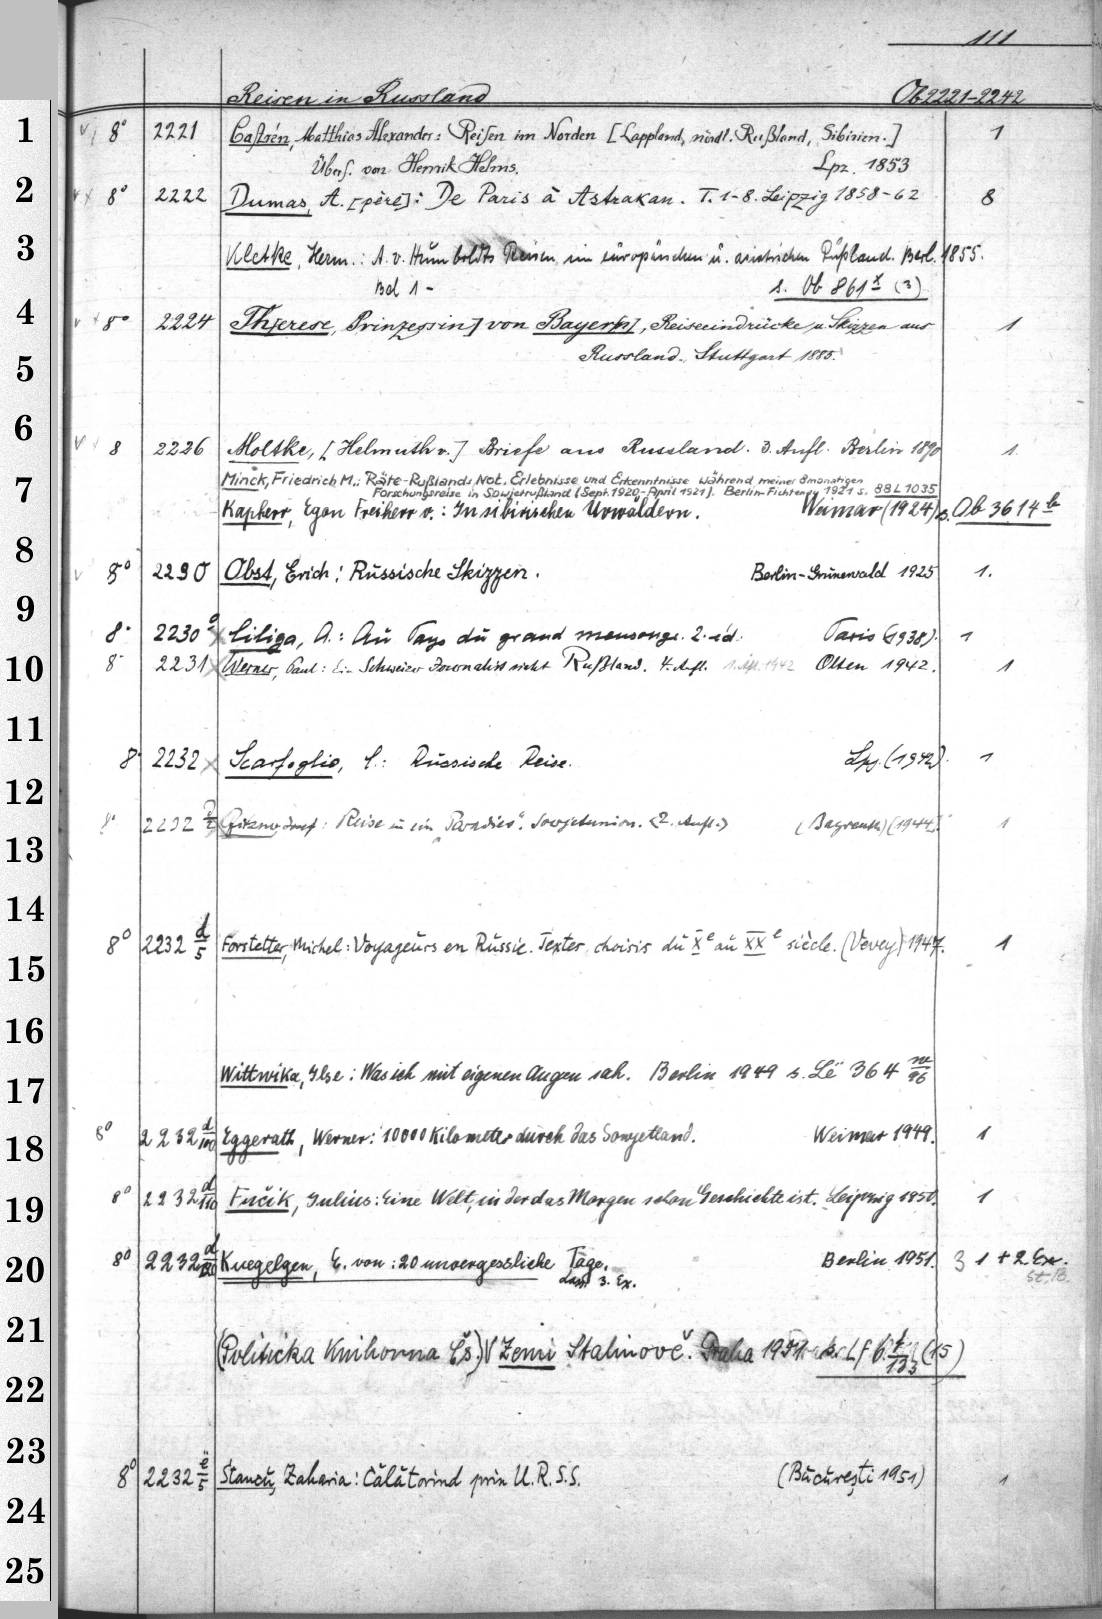 111
Reisen in Russland Ob 2221-2242
1 8° 2221 Castrén, Matthias Alexander: Reisen im Norden [Lappland, nördl. Rußland, Sibirien.] 1
Übers. von Henrik Helms. Lpz. 1853
2 8° 2222 Dumas, A. [père]: De Paris à Astrakan. T. 1-8. Leipzig 1858-62 8
3 Kletke, Herm.: A. v. Humboldts Reisen im europäischen u. asiatischen Rußland. Berl. 1855.
Bd 1 - s. Ob 861 x (3)
4 8° 2224 Th[erese, Prinzessin] von Bayer[n], Reiseeindrücke u. Skizzen aus 1
5 Russland. Stuttgart 1885.
6 8 2226 Moltke, [Helmuth v.] Briefe aus Russland. 3. Aufl. Berlin 1890 1.
7 Minck, Friedrich M.: Räte-Rußlands Not. Erlebnisse und Erkenntnisse während meiner 8monatigen
Forschungsreise in Sowjetrußland (Sept. 1920-April 1921). Berlin-Fichtenau 1921 s. 88 L 1035
Kapherr, Egon Freiherr v.: In sibirischen Urwäldern. Weimar (1924) s. Ob 3614 b
8 8° 2230 Obst, Erich: Russische Skizzen. Berlin-Grunewald 1925 1.
9 8° 2230 a Ciliga, A.: Au Pays du grand mensonge. 2. éd. Paris (1938). 1
10 8° 2231 Werner, Paul: Ein Schweizer Journalist sieht Rußland. 4. Aufl. Olten 1942. 1
11
8° 2232 Scarfoglio, C.: Russische Reise. Lpz. (1942). 1
12 8° 2232 Josef: Reise in ein "Paradies". Sowjetunion. (2. Aufl.) (Bayreuth) (1944). 1
13
14
8° 2232 d/5 Forstetter, Michel: Voyageurs en Russie. Textes choisis du Xe au XXe siècle. (Vevey) 1947. 1
15
16
17 Wittwika, Ilse: Was ich mit eigenen Augen sah. Berlin 1949 s. Lë 364 m/96
18 8° 2232 d/100 Eggerath, Werner: 10000 Kilometer durch das Sowjetland. Weimar 1949. 1
19 8° 2232 d/110 Fučik, Julius: Eine Welt, in der das Morgen schon Geschichte ist. Leipzig 1950. 1
20 8° 2232 d/120 Kuegelgen, E. von: 20 unvergessliche Tage. Berlin 1951. 3 1 + 2 Ex.
3. Ex. St. B.
21 (Politicka Knihovna Čs.) V Zemi Stalinově. Praha 1951 s. Lf 6 (15)
22
23
8° 2232 e/5 Stancu, Zaharia: Călătorind prin U.R.S.S. (Bucureşti 1951) 1
24
25